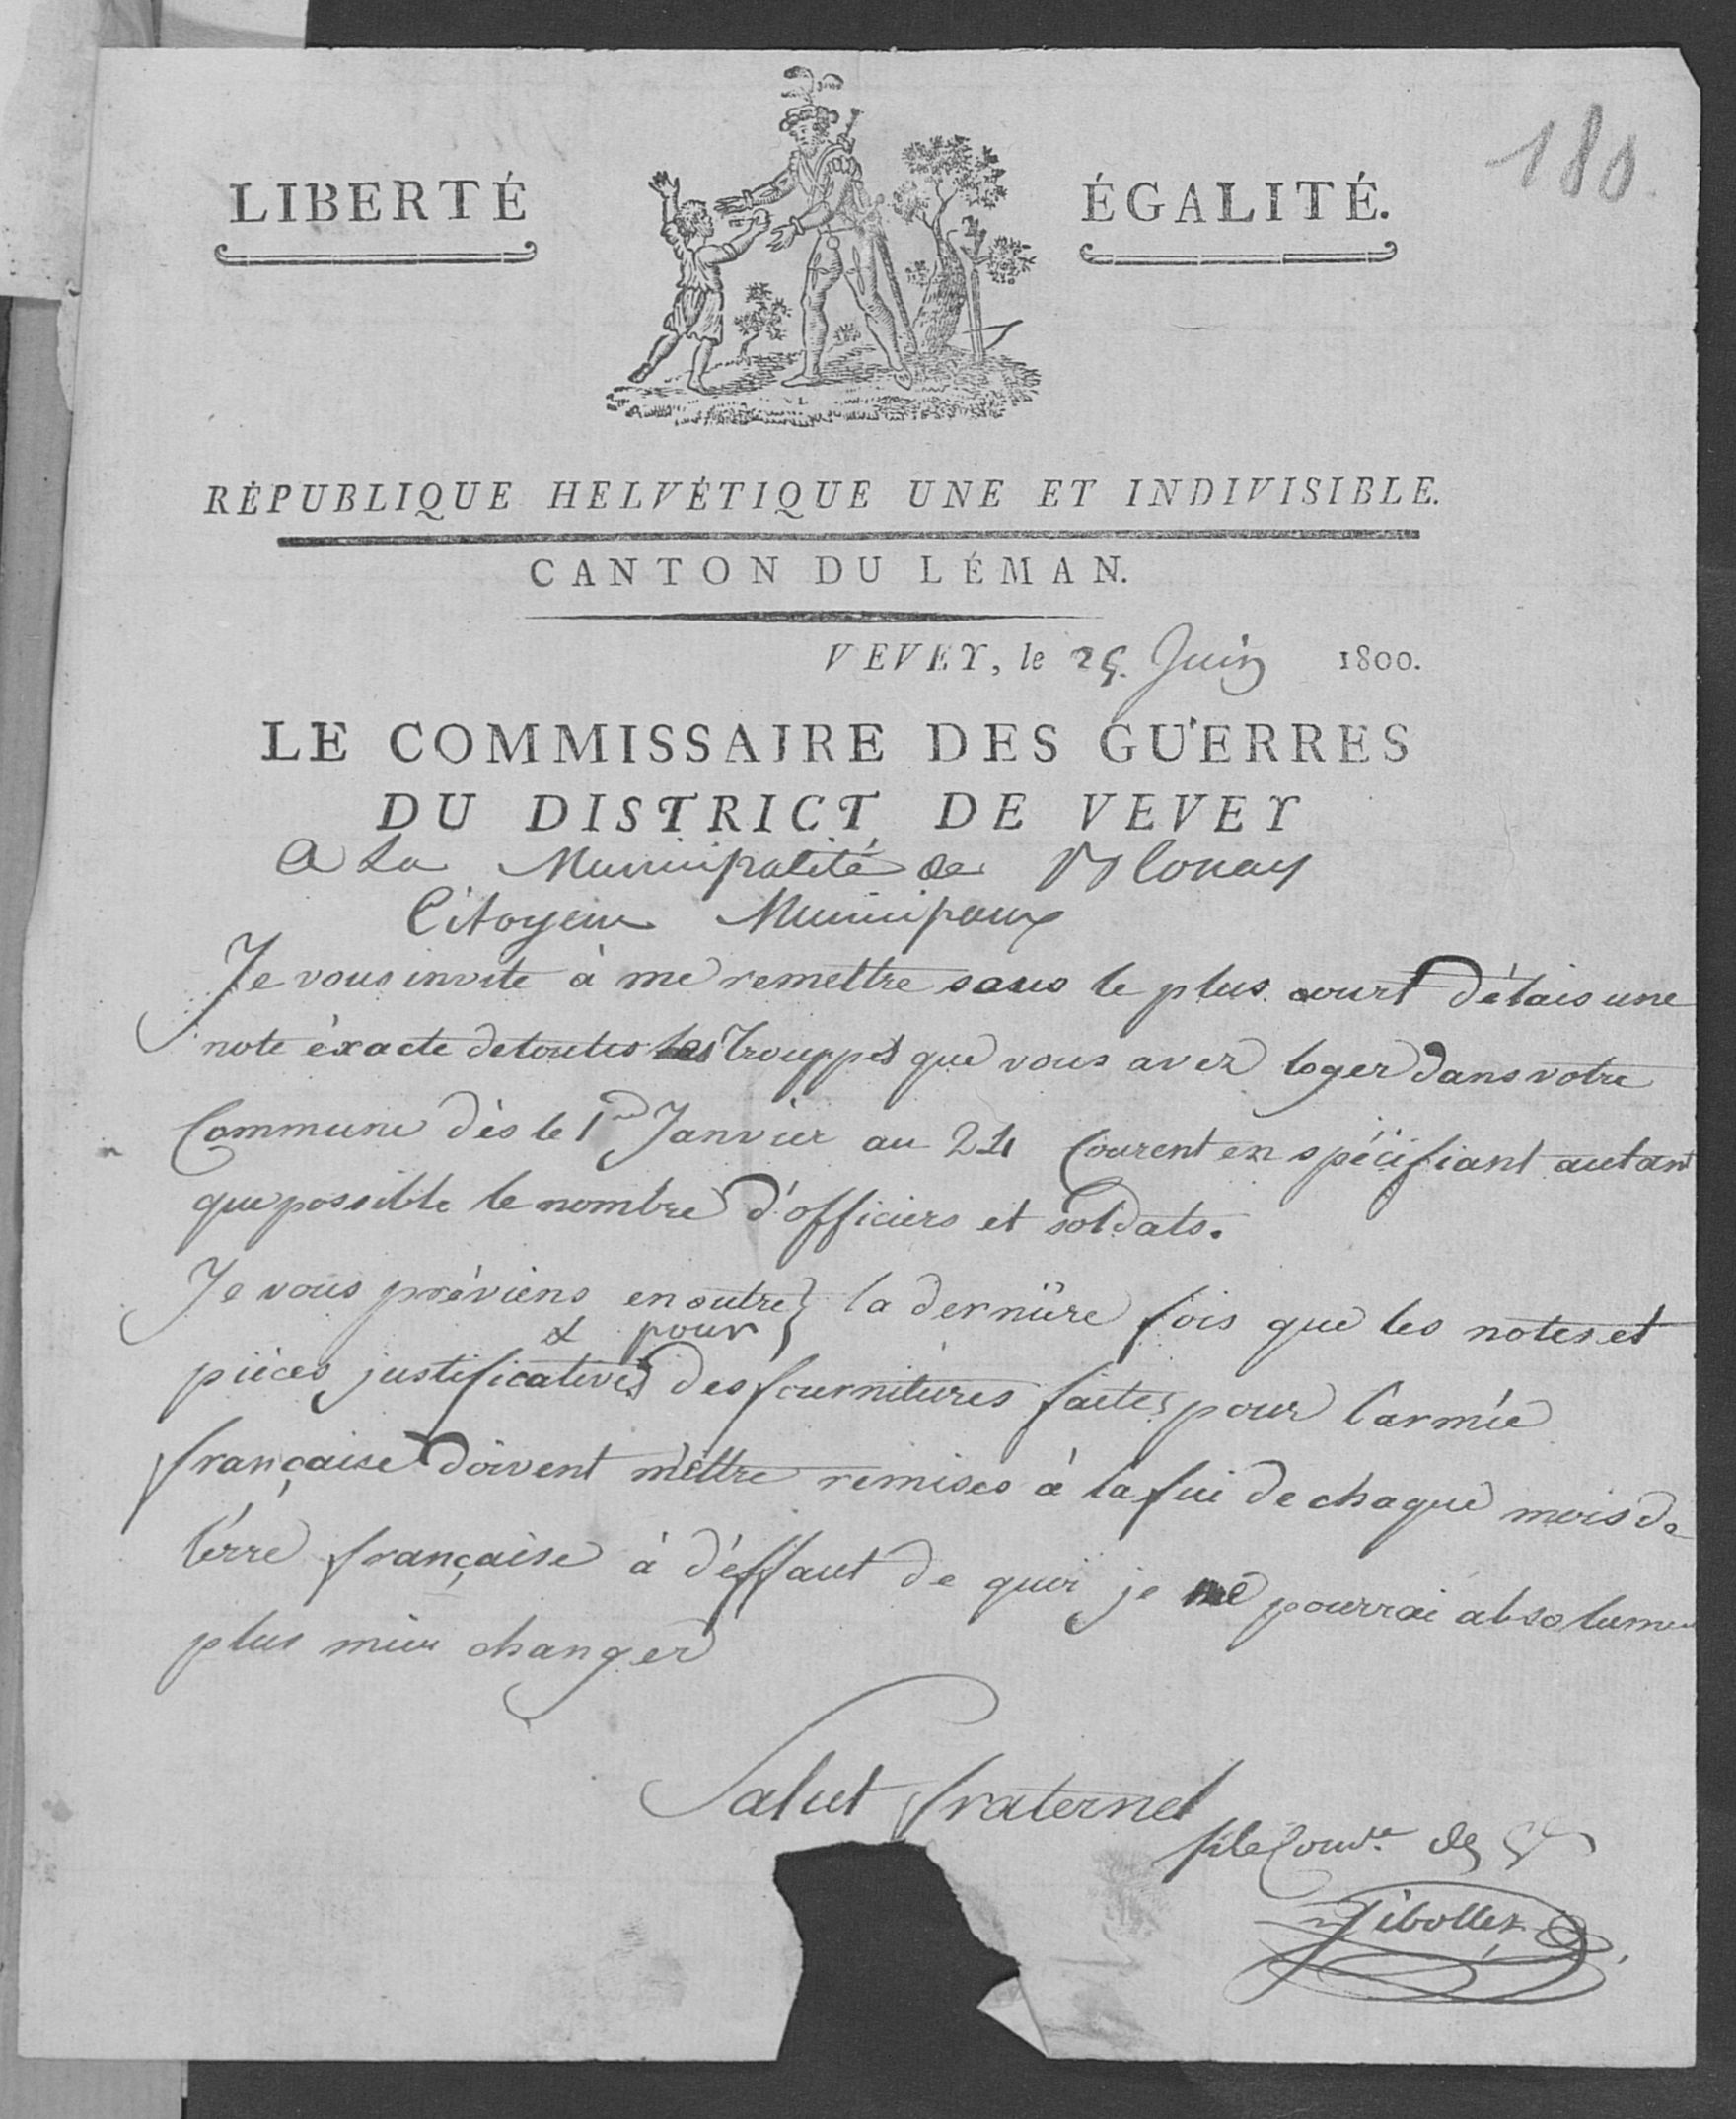 180
LIBERTÉ ÉGALITÉ.
RÉPUBLIQUE HELVÉTIQUE UNE ET INDIVISIBLE.
CANTON DU LÉMAN.
VEVEY, le 25. Juin 1800.
LE COMMISSAIRE DES GUERRES
DU DISTRICT DE VEVEY
A La Municipalité de Blonay
Citoyens Municipaux
Je vous invite à me remettre sous le plus court délais une
note éxacte de toutes les Trouppes que vous avez loger dans votre
Commune dès le 1er Janvier au 24 Courent en spécifiant autant
que possible le nombre d'officiers et soldats.
Je vous préviens en outre la dernière fois que les notes et
& pour
pièces justificatives des fournitures faites pour l'armée
française doivent mêttre remises à la fin de chaque mois de
l'érre française à d'éffaut de quoi je ne pourrai absolument
plus m'en changer
Salut fraternel